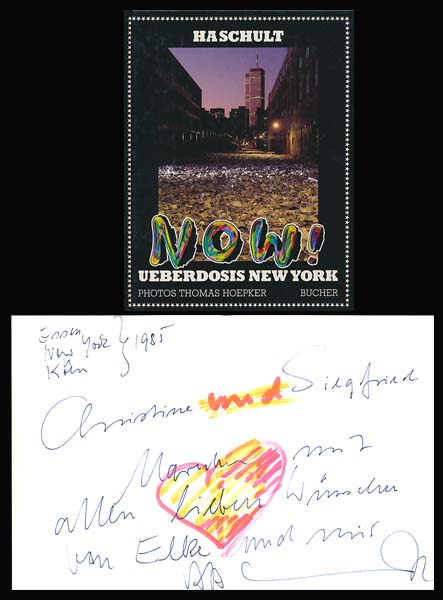 HA SCHULT
NOW!
UEBERDOSIS NEW YORK
PHOTOS THOMAS HOEPKER BUCHER
Essen
New York } 1985
Köln
Christine und Siegfried
mit
allen lieben Wünschen
von Elke und mir